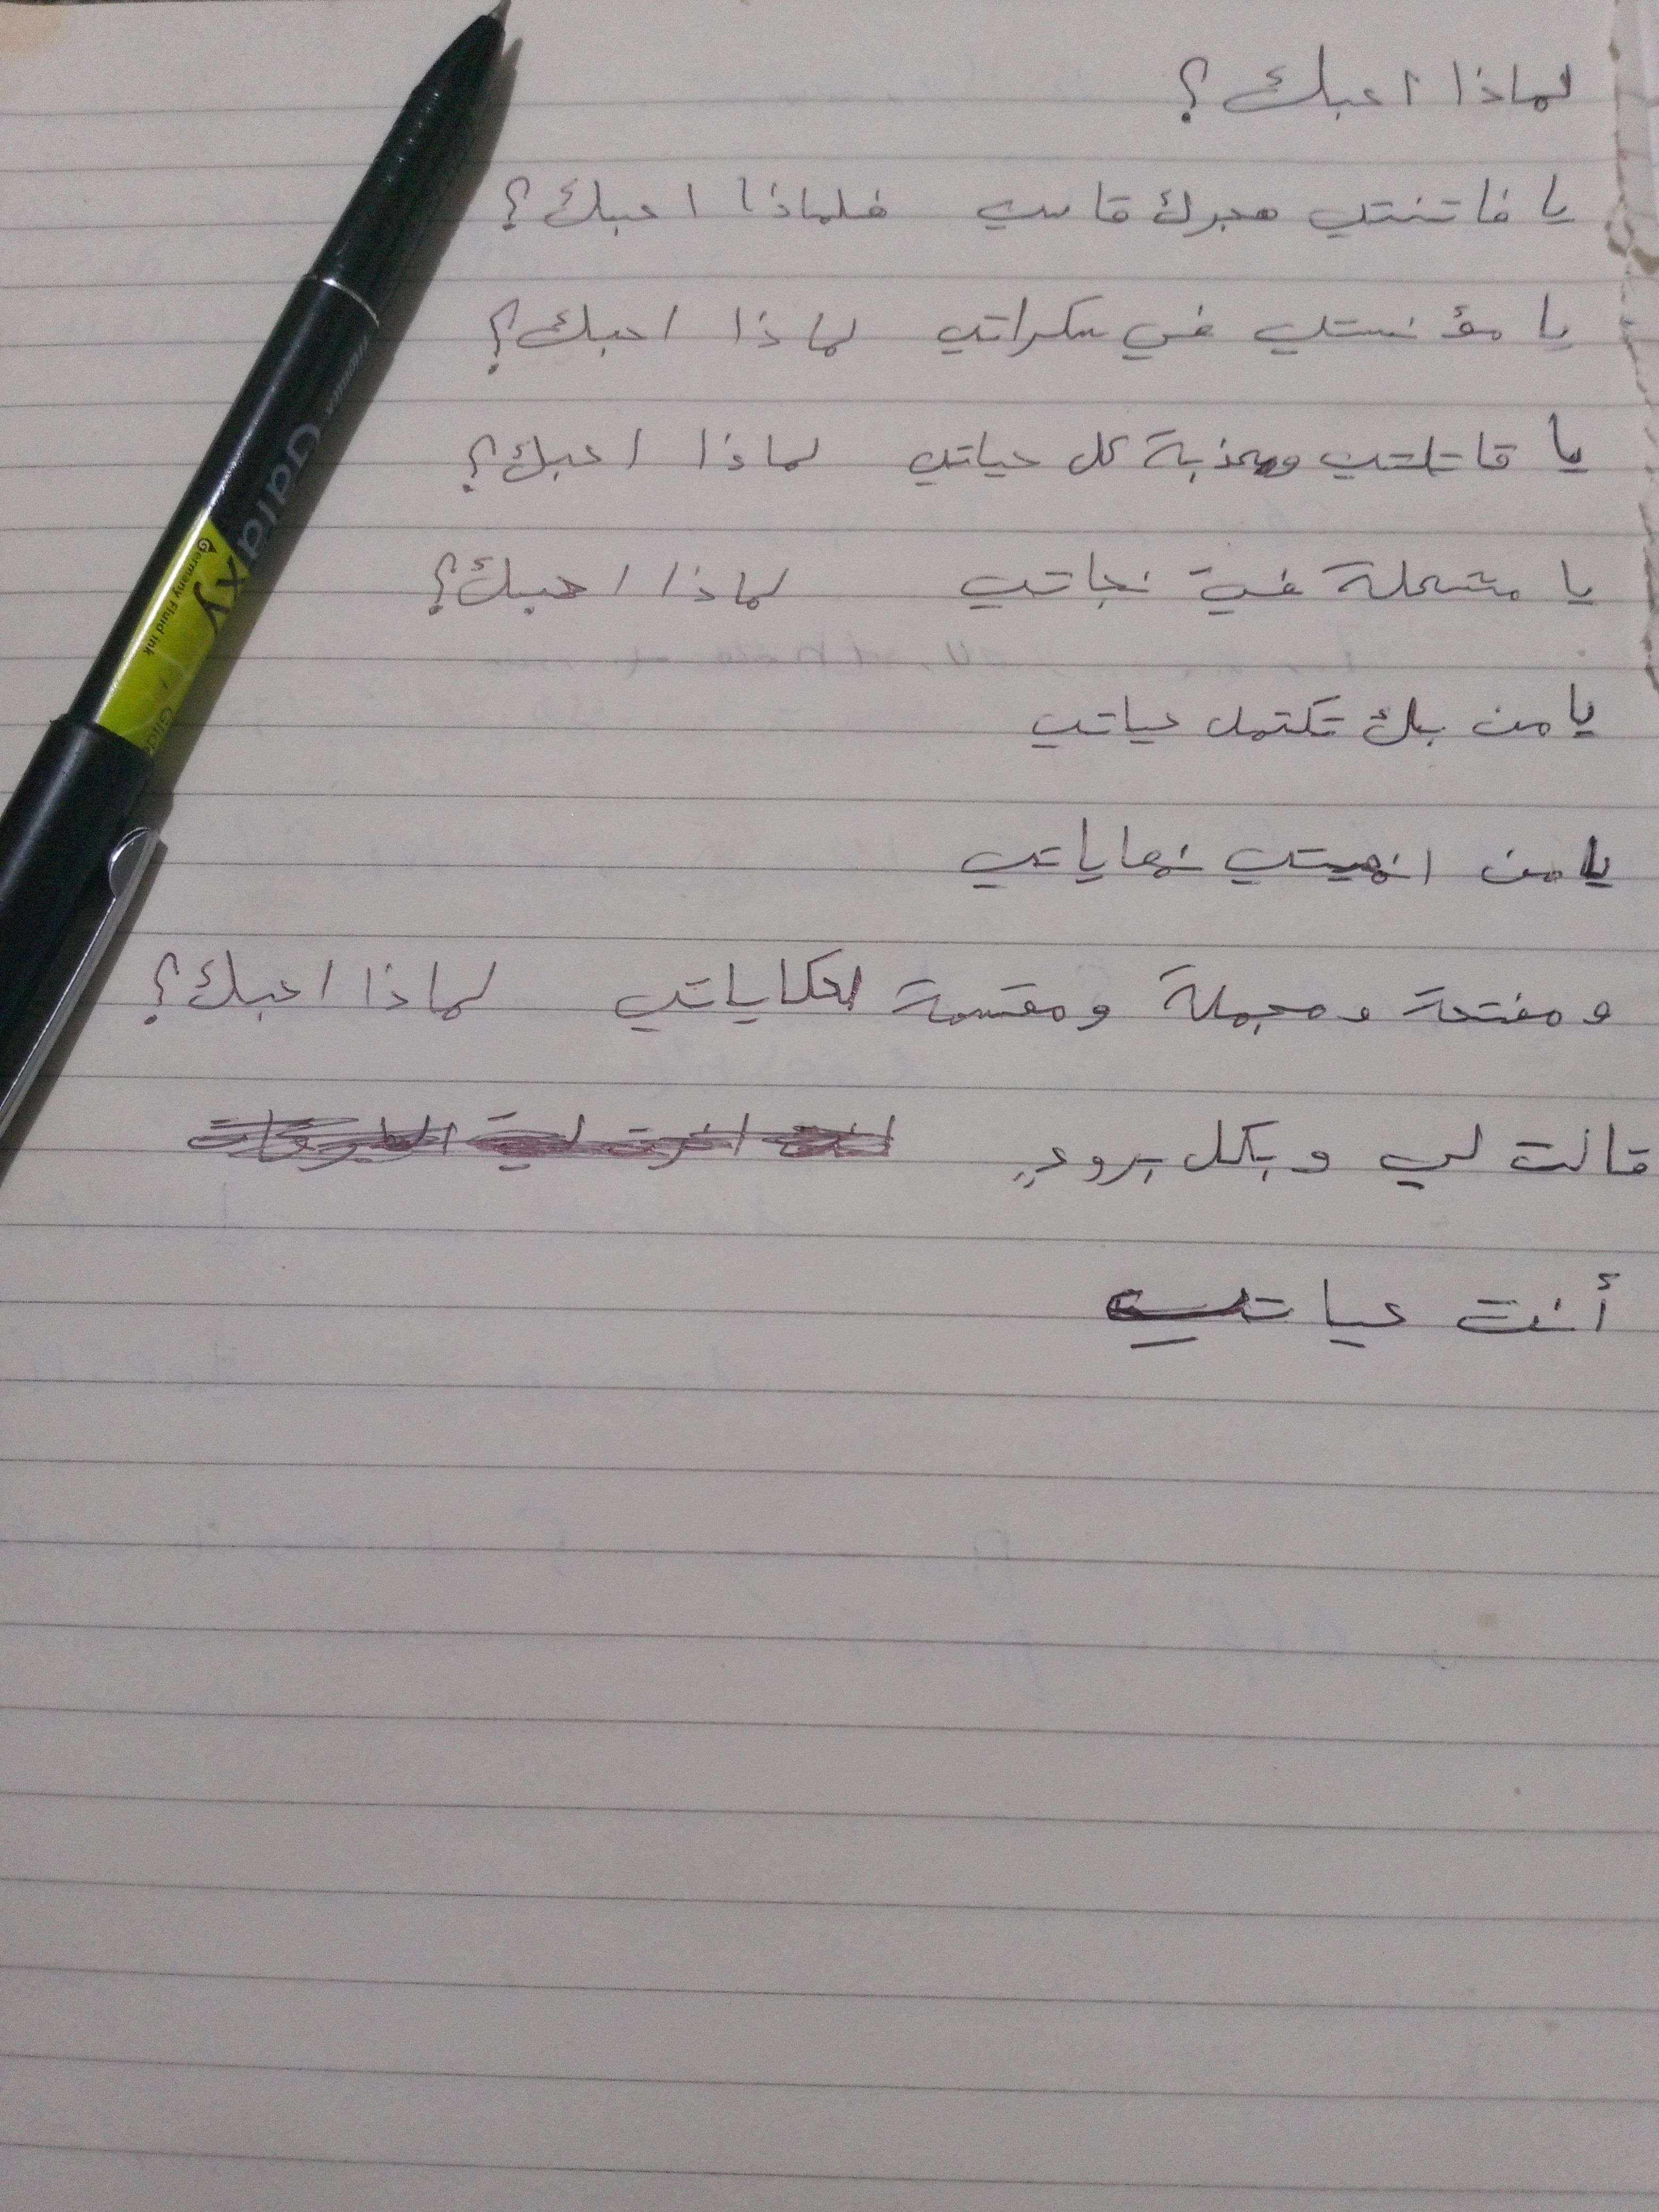 لماذا احبك ؟
يا فاتنتي هجرك قاسي فلماذا احبك ؟
يا مؤنستي في سكراتي لماذا احبك ؟
يا قاتلتي ومعذبة كل حياتي لماذا احبك ؟
يا مشعلة في نجاتي لماذا احبك ؟
يا من بك تكتمل حياتي
يا من انهيتي نهاياتي
و مفتحة ومجملة ومقسمة لحكاياتي لماذا احبك ؟
قالت لي وبكل برودٍ
أنت حياتي
Galaxy
Germany Fluid ink